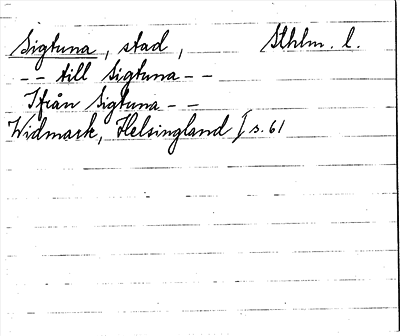 Sigtuna, stad, Sthlm. l.
-- till Sigtuna --
Ifrån Sigtuna --
Widmark, Helsingland I s. 61